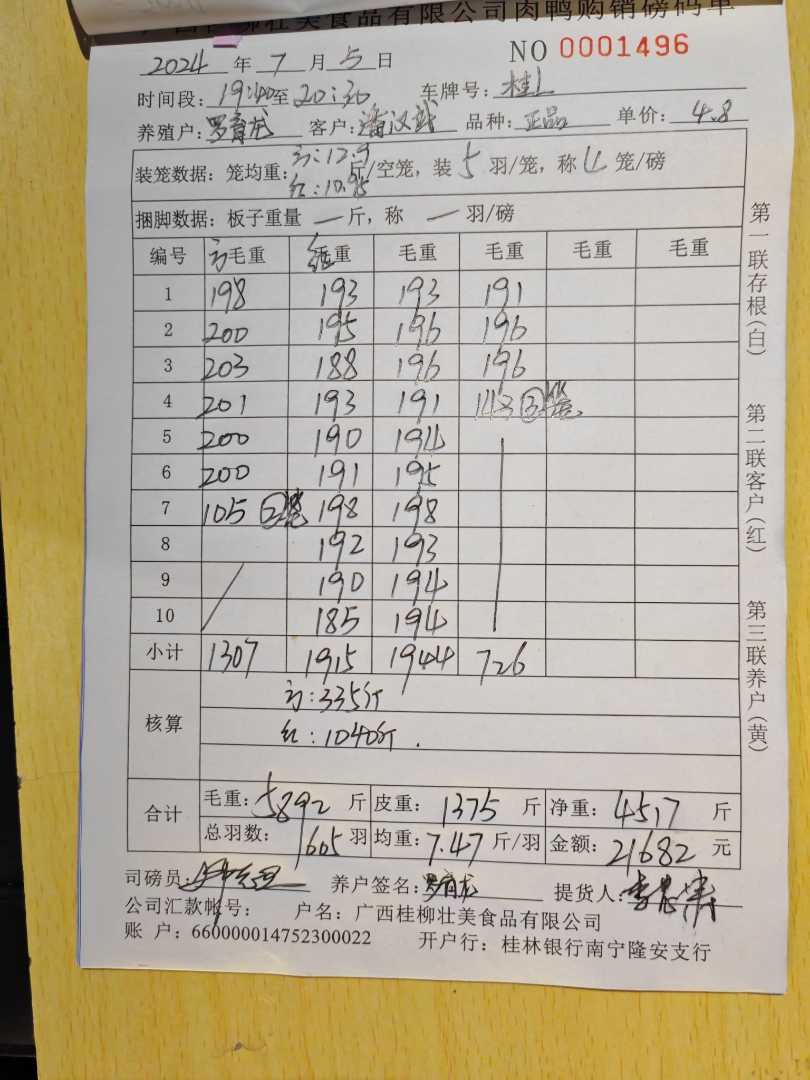 壮美食品有限公司肉鸭购销磅码单
2024 年 7 月 5 日 NO 0001496
时间段: 19:40至20:30 车牌号: 桂L
养殖户: 罗育龙 客户: 潘汉武 品种: 正品 单价: 4.8
方:12.9
装笼数据: 笼均重: 斤/空笼, 装 5 羽/笼, 称 4 笼/磅
红:10.95
捆脚数据: 板子重量 — 斤, 称 — 羽/磅
编号 方毛重 红毛重 毛重 毛重 毛重 毛重
1 198 193 193 191
2 200 195 196 196
3 203 188 196 196
4 201 193 191 143 ③笼
5 200 190 194
6 200 191 195
7 105 ②笼 198 198
8 192 193
9 190 194
10 185 194
小计 1307 1915 1944 726
核算 方:335斤
红:1040斤.
合计 毛重: 5892 斤 皮重: 1375 斤 净重: 4517 斤
总羽数: 605 羽 均重: 7.47 斤/羽 金额: 21682 元
司磅员: 养户签名: 罗育龙 提货人:
公司汇款帐号: 户名: 广西桂柳壮美食品有限公司
账 户: 660000014752300022 开户行: 桂林银行南宁隆安支行
第一联存根(白) 第二联客户(红) 第三联养户(黄)